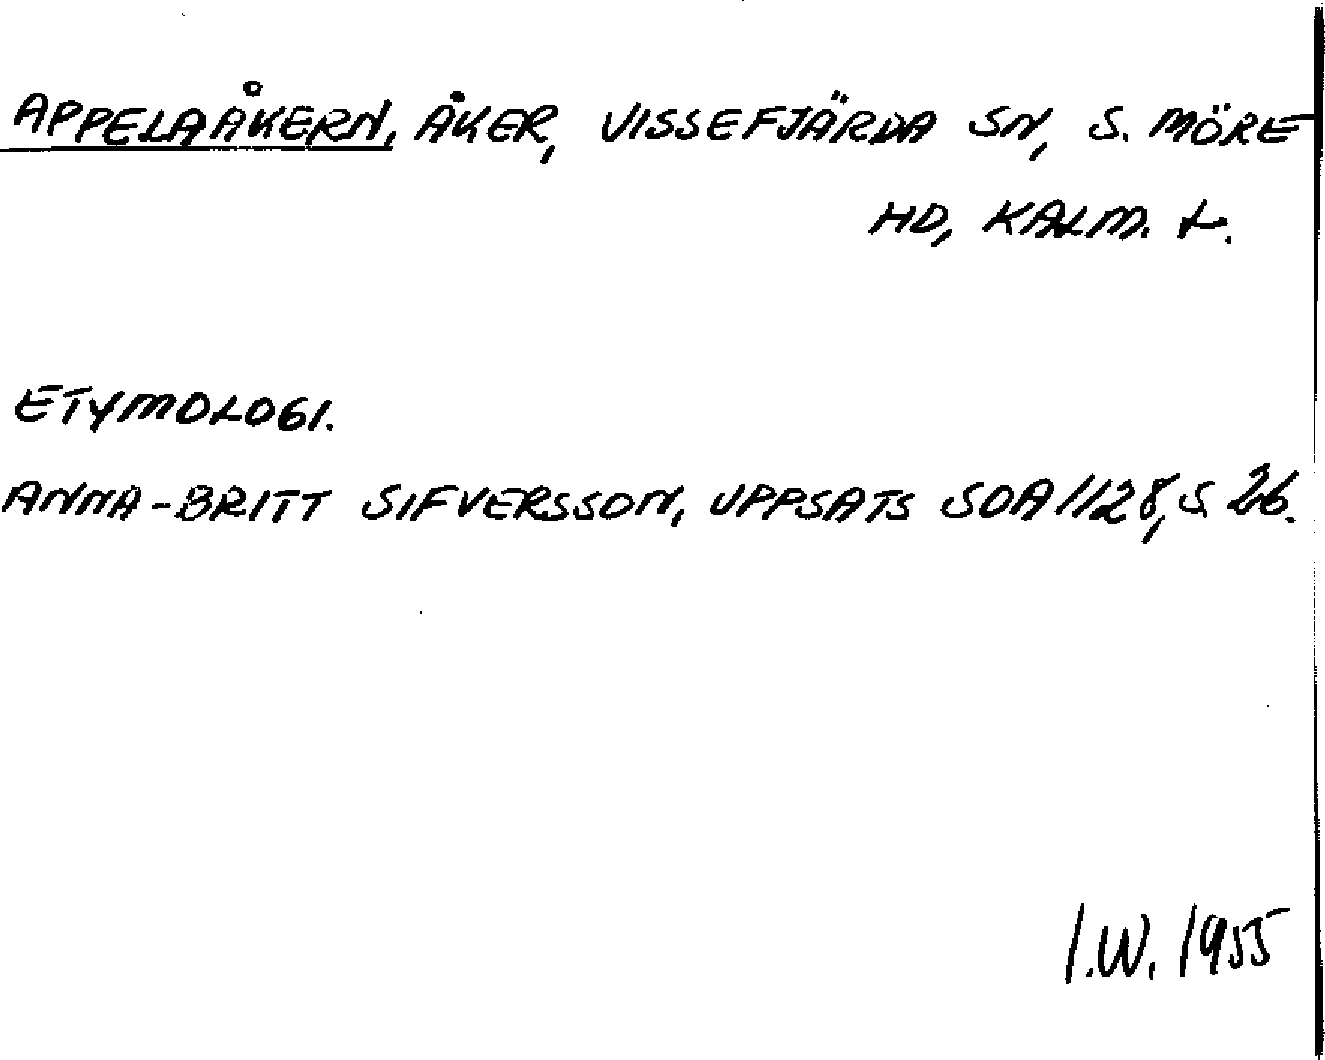 APPELAÅKERN, ÅKER, VISSEFJÄRDA SN, S. MÖRE
HD, KALM. L.
ETYMOLOGI.
ANNA-BRITT SIFVERSSON, UPPSATS SOA 1128, S 26.
I.W. 1955